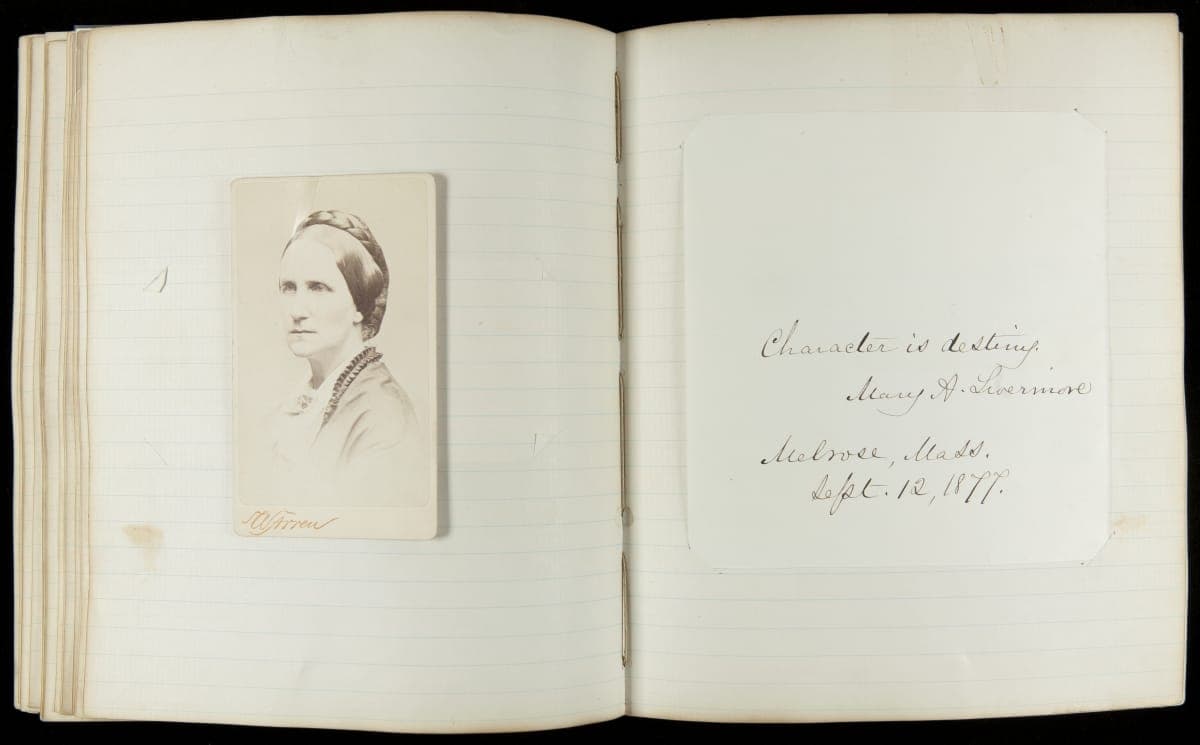 Character is destiny.
Mary A. Livermore
Melrose, Mass.
Sept. 12, 1877.